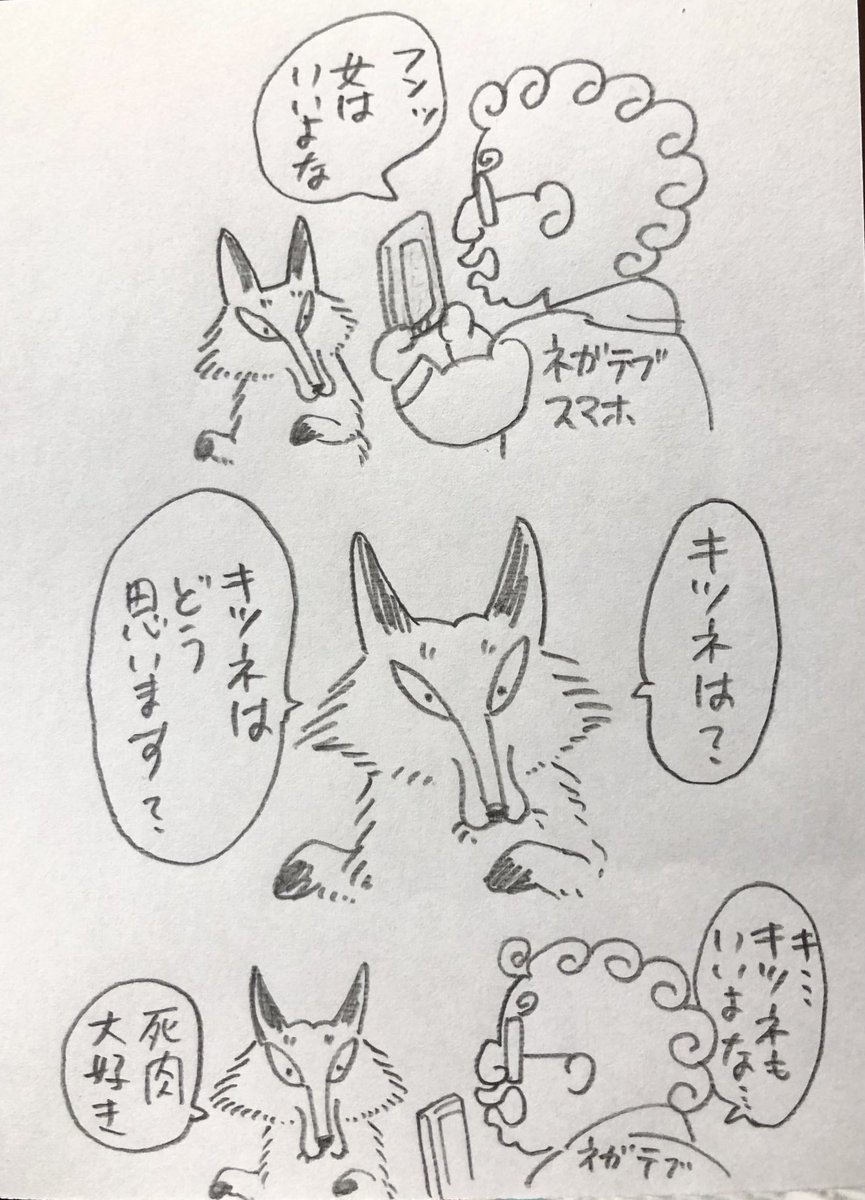 フンッ
女は
いいよな
ネガテブ
スマホ
キツネは?
キツネは
どう
思います?
キ…
キツネも
いいよな…
ネガテブ
死肉
大好き